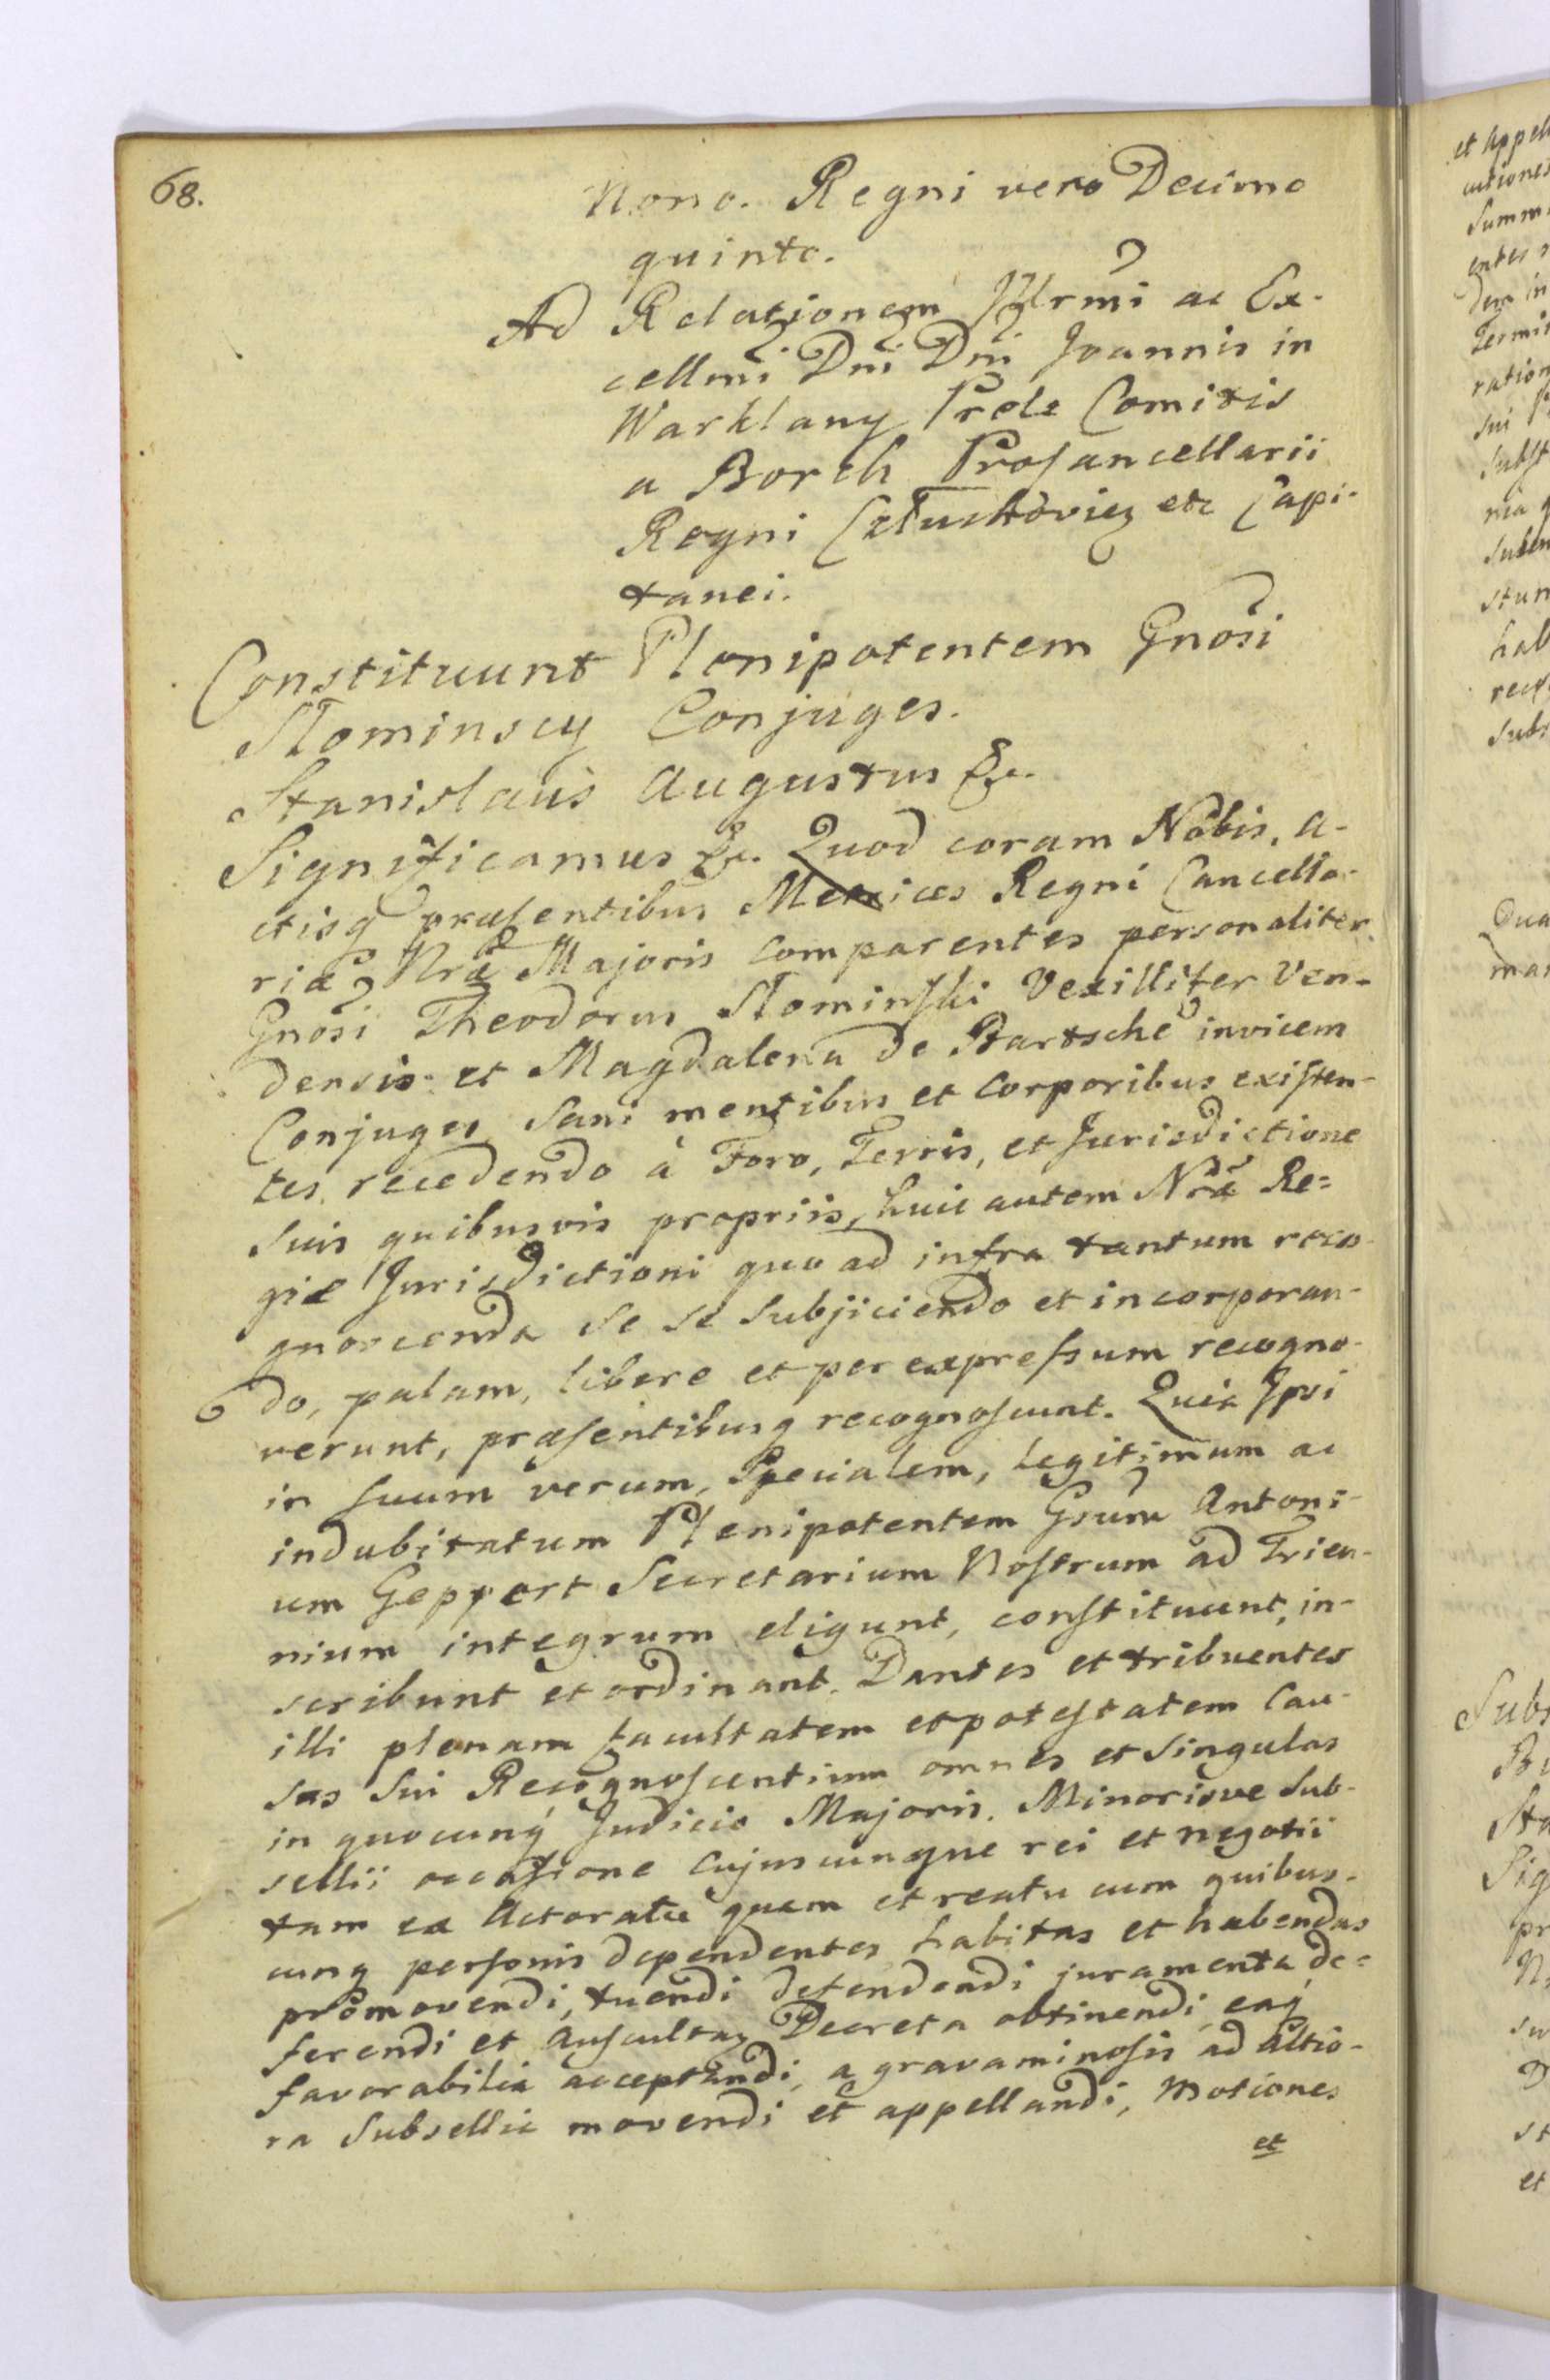 68.
Nono. Regni vero Decimo
quinto.
Ad Relationem Illrmi ac Ex-
cellmi Dni Dni Joannis in
Warklany Prele Comitis
a Borch Procancellarii
Regni Człuchoviez etc Capi-
tanei.
Constituunt Plenipotentem Gnosi
Słominscy Conjuges.
Stanislaus Augustus &c.
Significamus &c. Quod coram Nobis, A-
ctisq præsentibus Metrices Regni Cancella-
riæ Nræ Majoris comparentes personaliter
Gnosi Theodorus Słominski Vexillifer Ven-
densis et Magdalena de Bartsche invicem
Conjuges Sani mentibus et Corporibus existen-
tes, recedendo à Foro, Terris, et Jurisdictione
suis quibusvis propriis, huic autem Nræ Re=
giæ Jurisdictioni quo ad infra tantum reco-
gnoscenda se se subjiciendo et incorporan-
do, palam, libere et per expressum recogno-
verunt, præsentibusq recognoscunt. Quia Ipsi
in suum verum, Specialem, legitimum ac
indubitatum Plenipotentem Gsum Antoni-
um Geppert Secretarium Nostrum ad Trien-
nium integrum eligunt, constituunt, in-
scribunt et ordinant. Dantes et tribuentes
illi plenam facultatem et potestatem Cau-
sas Sui Recognoscentium omnes et Singulas
in quocunq Judicio Majoris, Minorisve Sub-
sellii occasione Cujuscunque rei et negotii
tam ex Actoratu quam et reatu cum quibus-
cunq personis dependentes habitas et habendas
promovendi, tuendi defendendi juramenta de=
ferendi et Decreta obtinendi eaq
favorabilia acceptandi, a gravaminosis ad altio-
ra Subsellia movendi et appellandi, Motiones
et
et appell
Summ
Subs